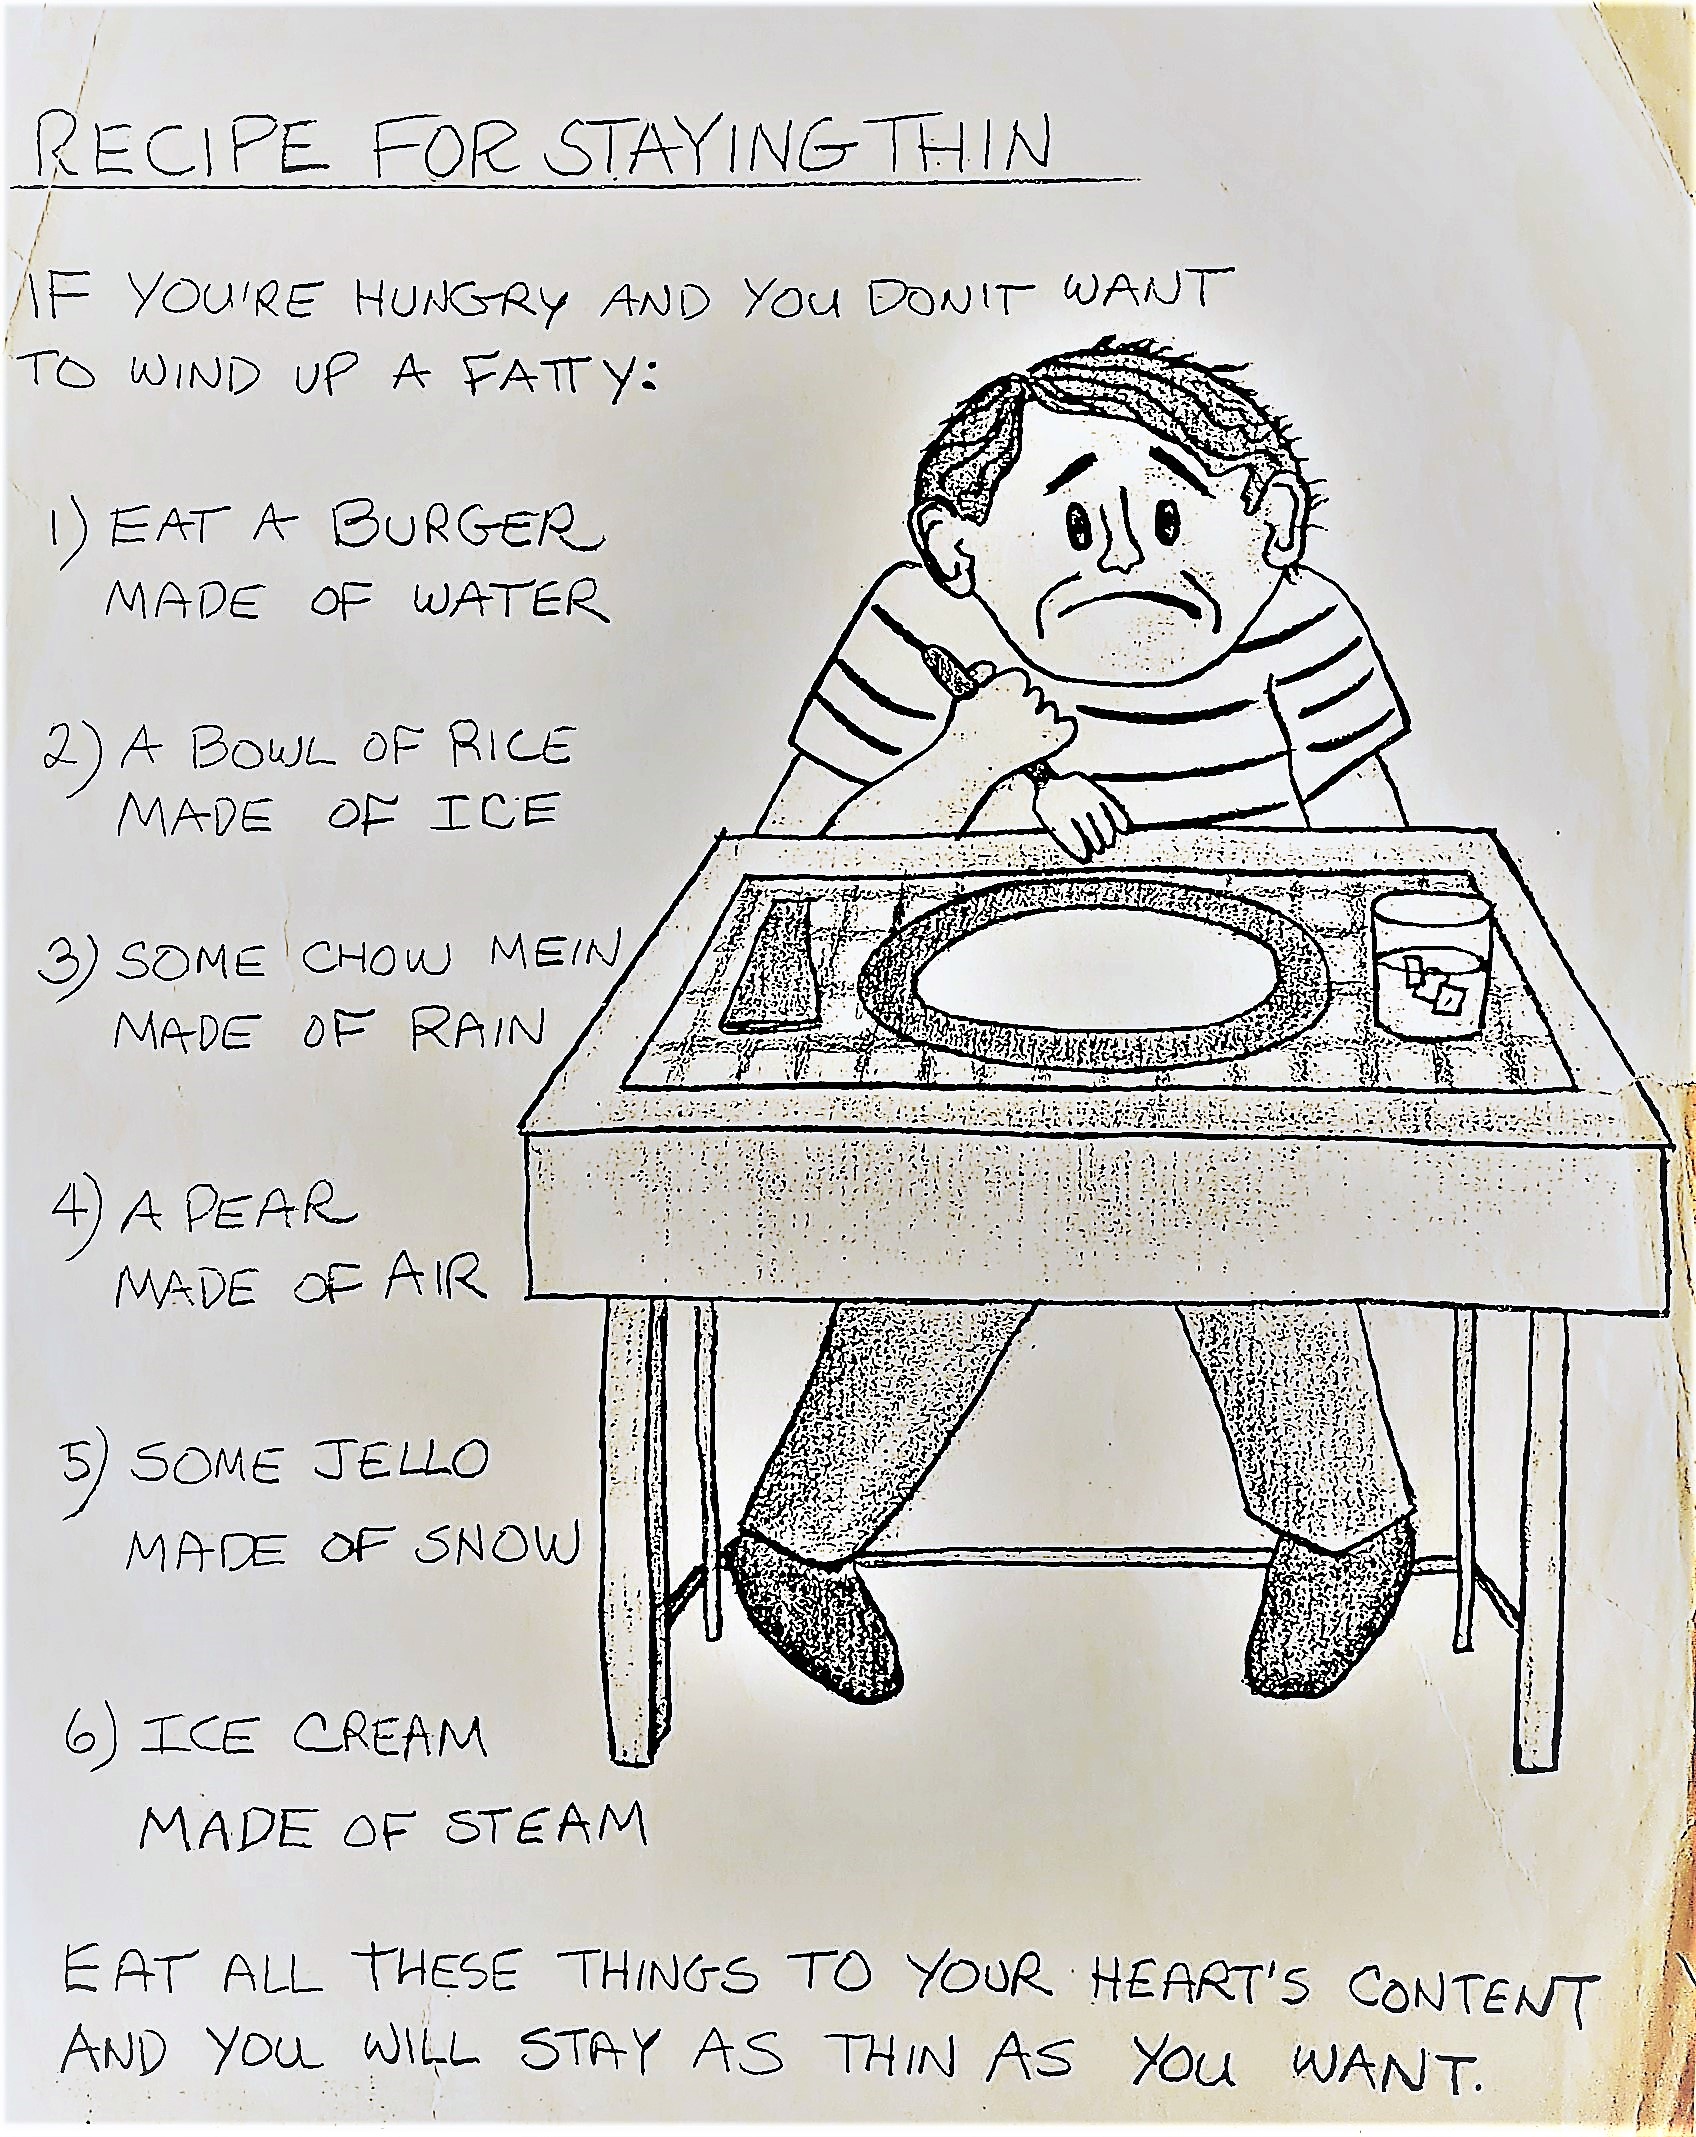 RECIPE FOR STAYING THIN
IF YOU'RE HUNGRY AND YOU DON'T WANT
TO WIND UP A FATTY:
1) EAT A BURGER
MADE OF WATER
2) A BOWL OF RICE
MADE OF ICE
3) SOME CHOW MEIN
MADE OF RAIN
4) A PEAR
MADE OF AIR
5) SOME JELLO
MADE OF SNOW
6) ICE CREAM
MADE OF STEAM
EAT ALL THESE THINGS TO YOUR HEART'S CONTENT
AND YOU WILL STAY AS THIN AS YOU WANT.